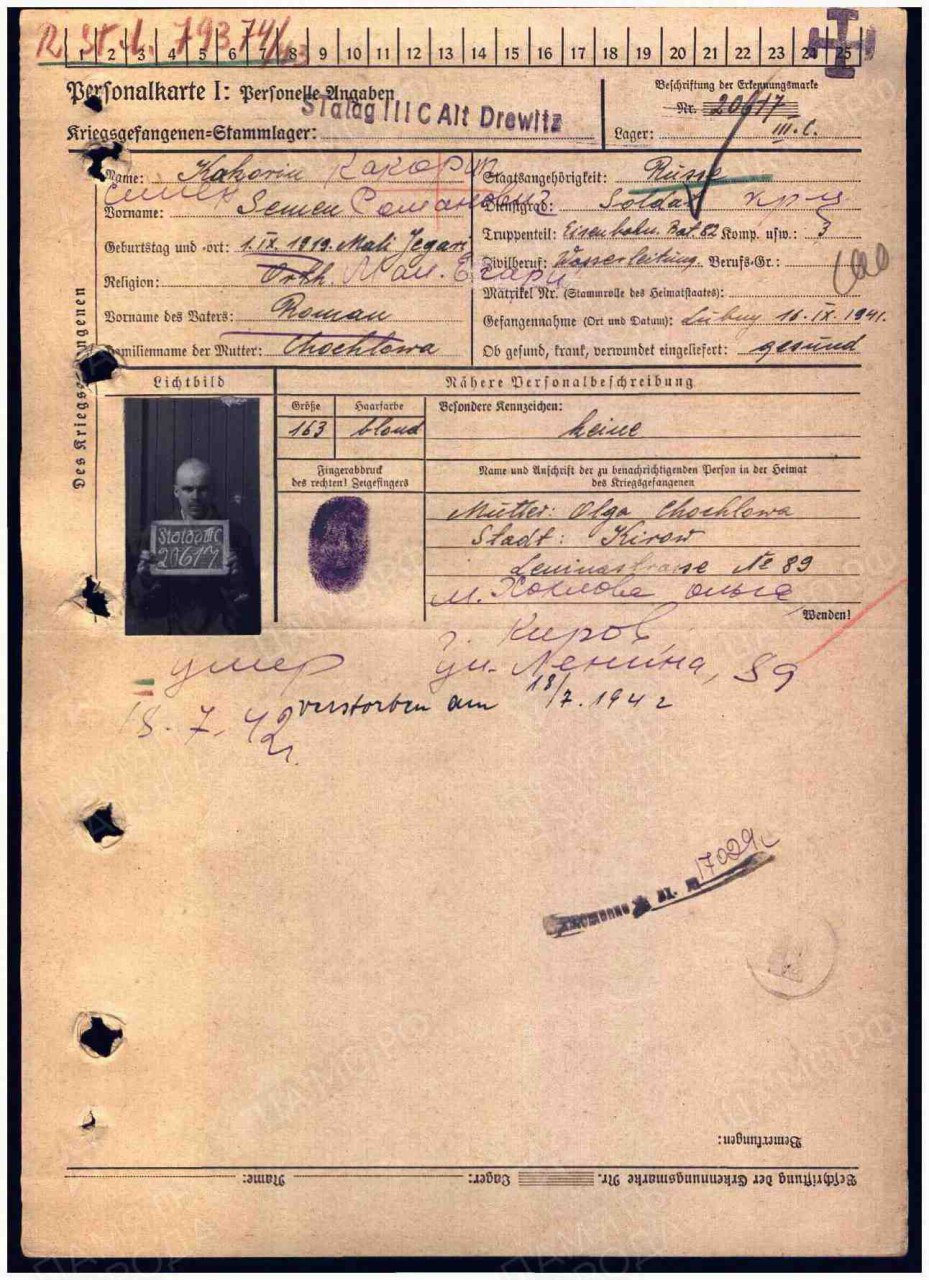 R. St. A. 79374/43
1 2 3 4 5 6 7 8 9 10 11 12 13 14 15 16 17 18 19 20 21 22 23 24 25
Personalkarte I: Personelle Angaben
Beschriftung der Erkennungsmarke
Stalag III C Alt Drewitz
Nr. 20617
Kriegsgefangenen=Stammlager:
Lager: III. C.
Des Kriegsgefangenen
Name: Kakorin Какорин
Staatsangehörigkeit: Russe
Семен
Vorname: Semen Романович
Dienstgrad: Soldat
Geburtstag und -ort: 1.IX.1919. Mali Jegari
Truppenteil: Eisenbahn. Bat. 62 Komp. usw.: 3
Religion: Orth. Мал. Егари
Zivilberuf: Wasserleitung. Berufs-Gr.:
Matrikel Nr. (Stammrolle des Heimatstaates):
Vorname des Vaters: Roman
Gefangennahme (Ort und Datum): 16.IX.1941.
Familienname der Mutter: Chochlowa
Ob gesund, krank, verwundet eingeliefert: gesund
Lichtbild
Nähere Personalbeschreibung
Größe Haarfarbe Besondere Kennzeichen:
163 blond keine
Fingerabdruck des rechten! Zeigefingers
Name und Anschrift der zu benachrichtigenden Person in der Heimat
des Kriegsgefangenen
Stalag III C
20617
Mutter: Olga Chochlowa
Stadt: Kirow
Leninastrasse № 89
м. Хохлова Ольга
Wenden!
г. Киров
умер ул. Ленина, 89
verstorben am 18/7.1942
18.7.42 г.
17029
Bemerkungen:
Beschriftung der Erkennungsmarke Nr. Lager: Name: